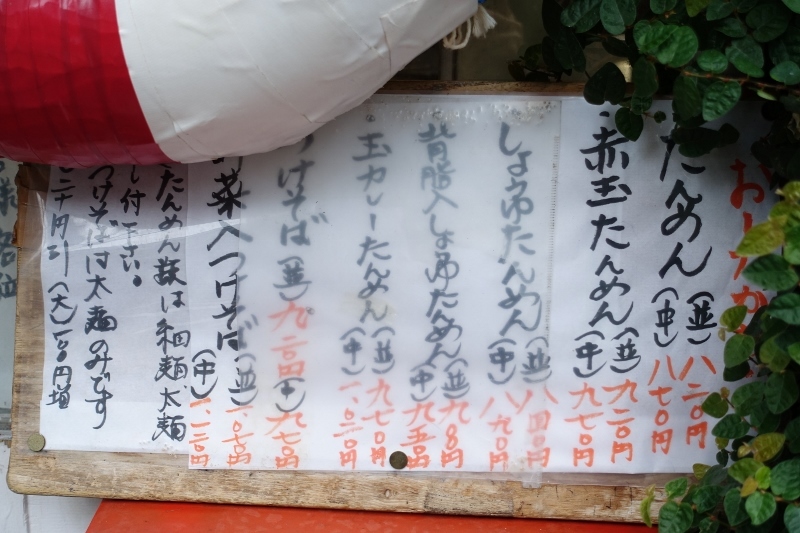 たんめん (並) 八二〇円
(中) 八七〇円
赤玉たんめん (並) 九二〇円
(中) 九七〇円
しょうゆたんめん (並) 八四〇円
(中) 八九〇円
背脂入しょうゆたんめん (並) 九〇〇円
(中) 九五〇円
玉カレーたんめん (並) 九七〇円
(中) 一、〇二〇円
つけそば (並) 九二〇円 (中) 九七〇円
菜入つけそば (並) 一、〇七〇円
(中) 一、一二〇円
たんめん類は細麺、太麺
し付下さい。
つけそばは太麺のみです
二十円引 (大) 一〇〇円増